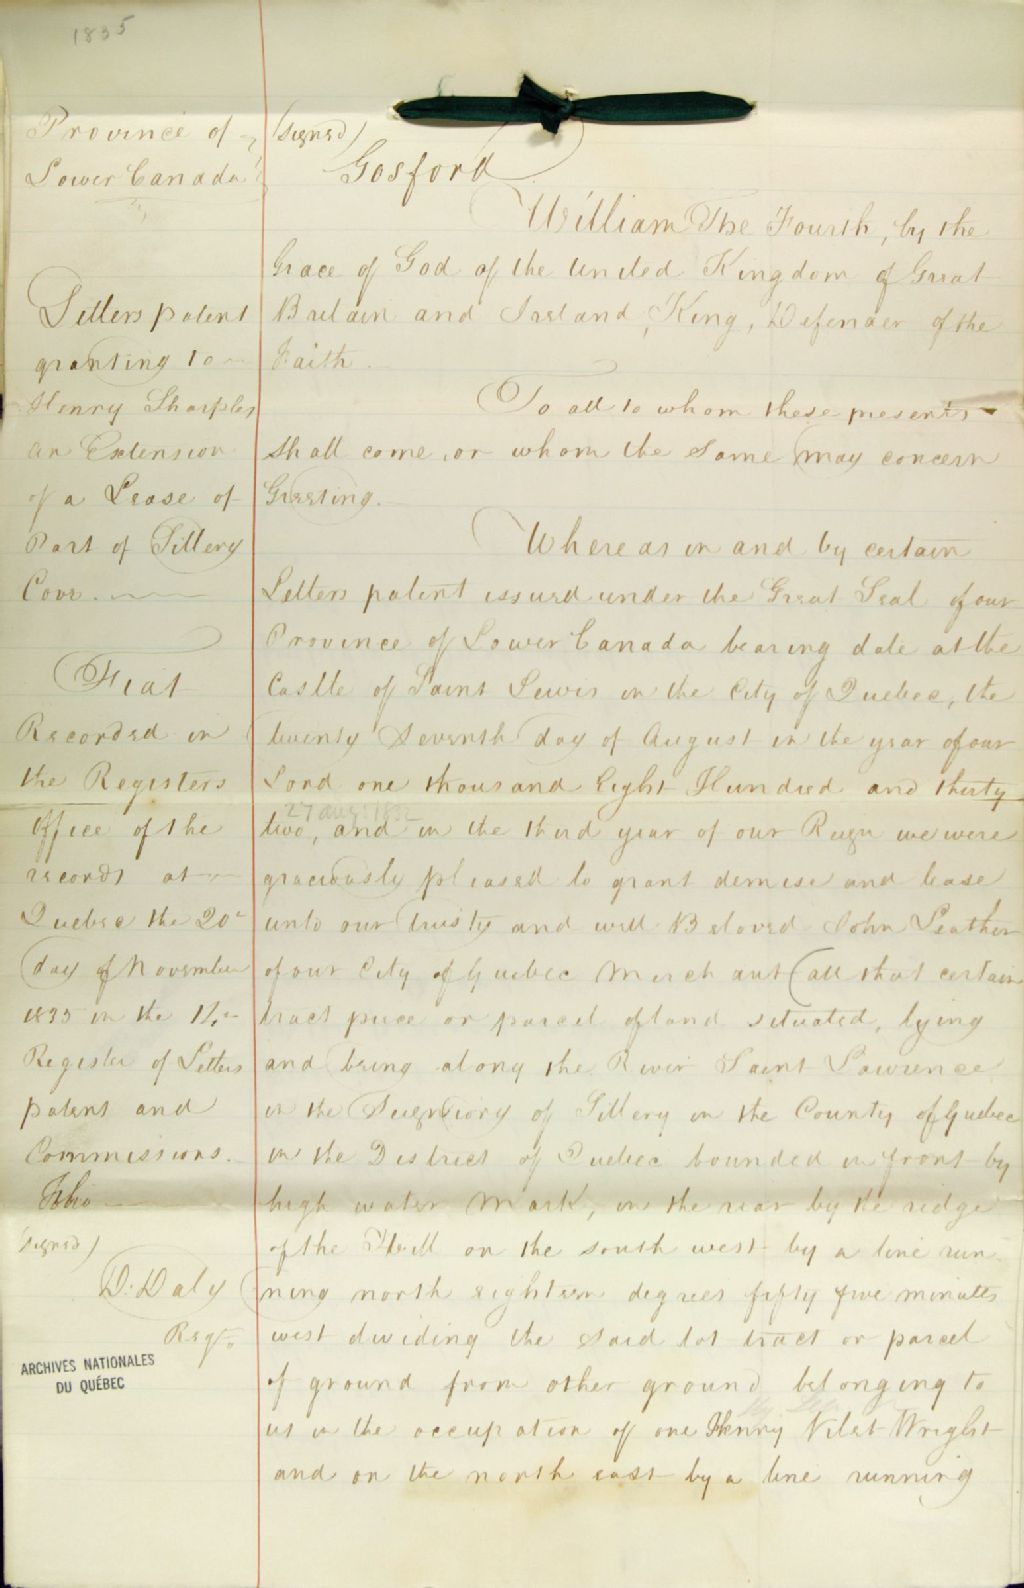 1835
Province of
Lower Canada
Letters patent
granting to
Henry Sharples
an Extension
of a Lease of
Part of Sillery
Cove.
Fiat
Recorded in
the Registers
Office of the
records at
Quebec the 20
day of November
1835 in the
Register of Letters
patent and
Commissions.
(signed)
D. Daly
Regr.
ARCHIVES NATIONALES
DU QUÉBEC
(signed)
Gosford
William The Fourth, by the
Grace of God of the United Kingdom of Great
Britain and Ireland, King, Defender of the
Faith.
To all to whom these presents
shall come, or whom the same may concern
Greeting.
Whereas in and by certain
Letters patent issued under the Great Seal of our
Province of Lower Canada bearing date at the
Castle of Saint Lewis in the City of Quebec, the
twenty Seventh day of August in the year of our
Lord one thousand Eight Hundred and thirty
27 Aug. 1832
two, and in the third year of our Reign we were
graciously pleased to grant demise and lease
unto our trusty and well Beloved John Leather
of our City of Quebec Merchant (all that certain
tract piece or parcel of land situated, lying
and being along the River Saint Lawrence
in the Seigniory of Sillery in the County of Quebec
in the District of Quebec bounded in front by
high water Mark, in the rear by the ridge
of the Hill on the south west by a line run
ning north eighteen degrees fifty five minutes
west dividing the said lot tract or parcel
of ground from other ground belonging to
us in the occupation of one Henry Wright
and on the north east by a line running